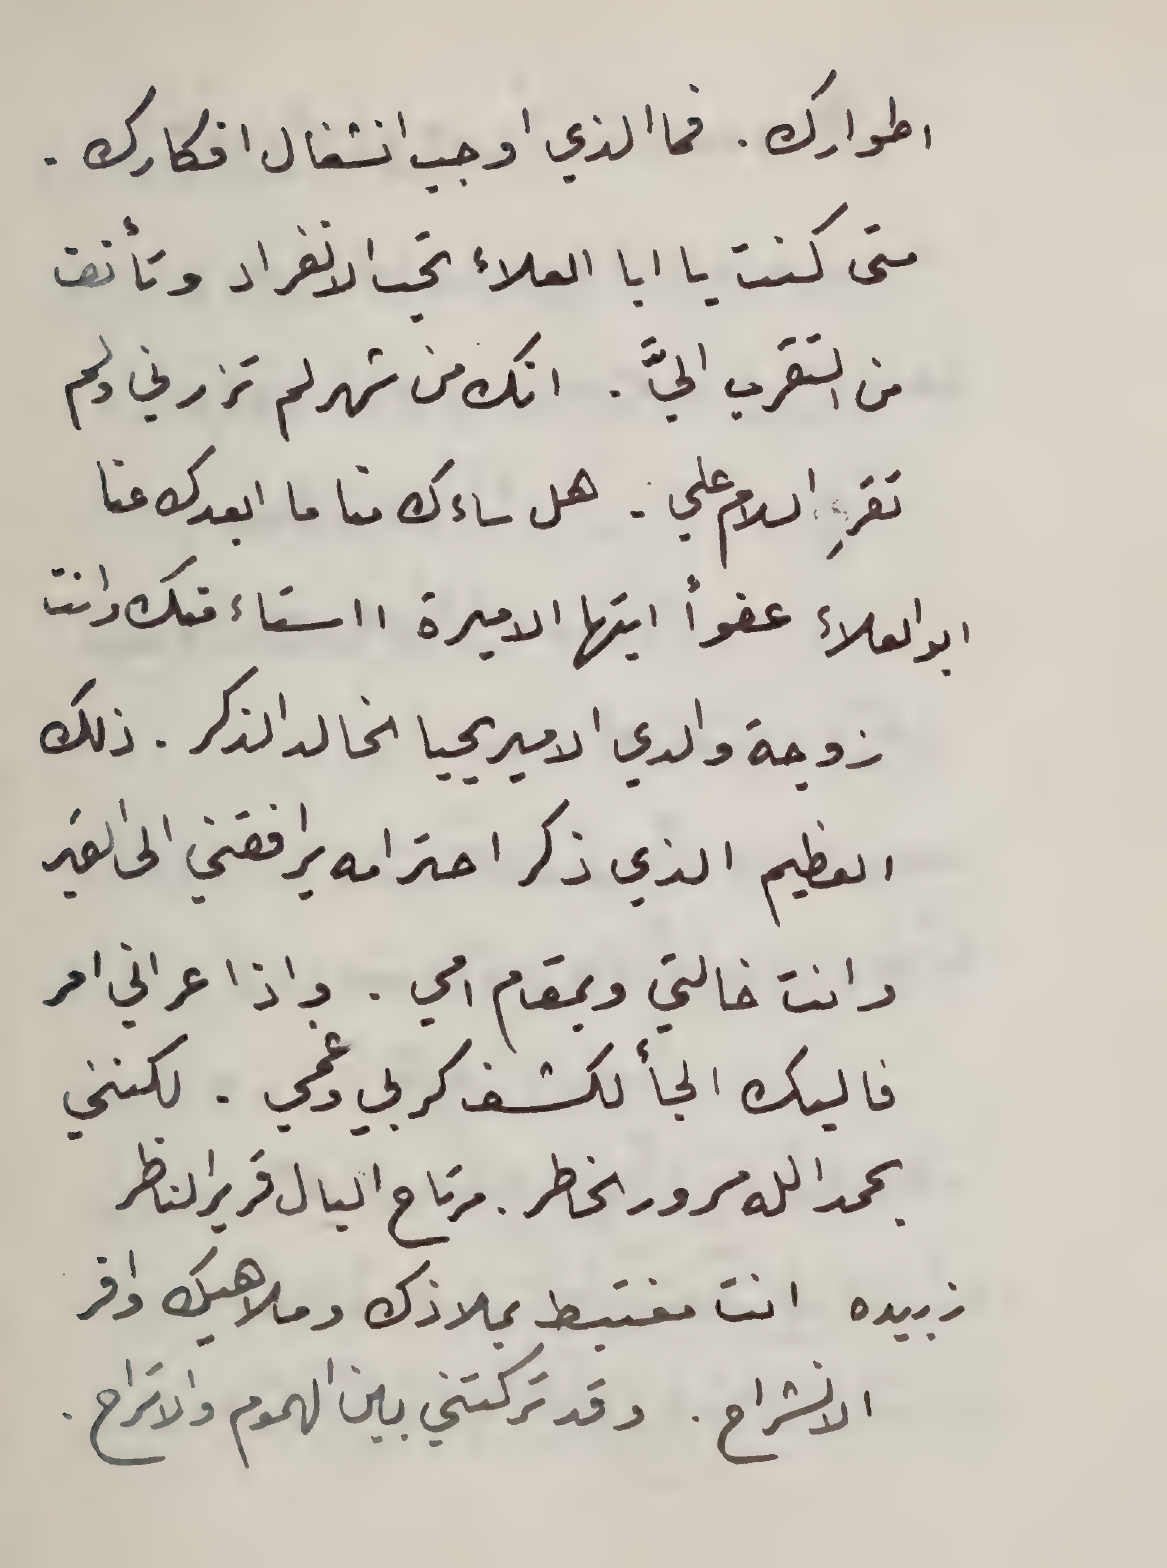 اطوارك . فما الذي اوجب انشغال افكارك .
متى كنت يا ابا العلاء تحب الانفراد وتأنف
من التقرب اليَّ . انك من شهر لم تزرني ولم
تقرِ السلام علي . هل ساءك منا ما ابعدك عنا
ابو العلاء عفواً ايتها الاميرة ااستاء منك وانت
زوجة والدي الامير يحيا الخالد الذكر . ذلك
العظيم الذي ذكر احترامه يرافقني الى القبر
وانت خالتي وبمقام امي . واذا عراني امر
فاليك الجأ لكشف كربي وغمي . لكنني
بحمد الله مسرور الخاطر . مرتاح البال قرير الناظر
زبيده انت مغتبط بملاذك وملاهيك وافر
الانشراح . وقد تركتني بين الهموم والاتراح .